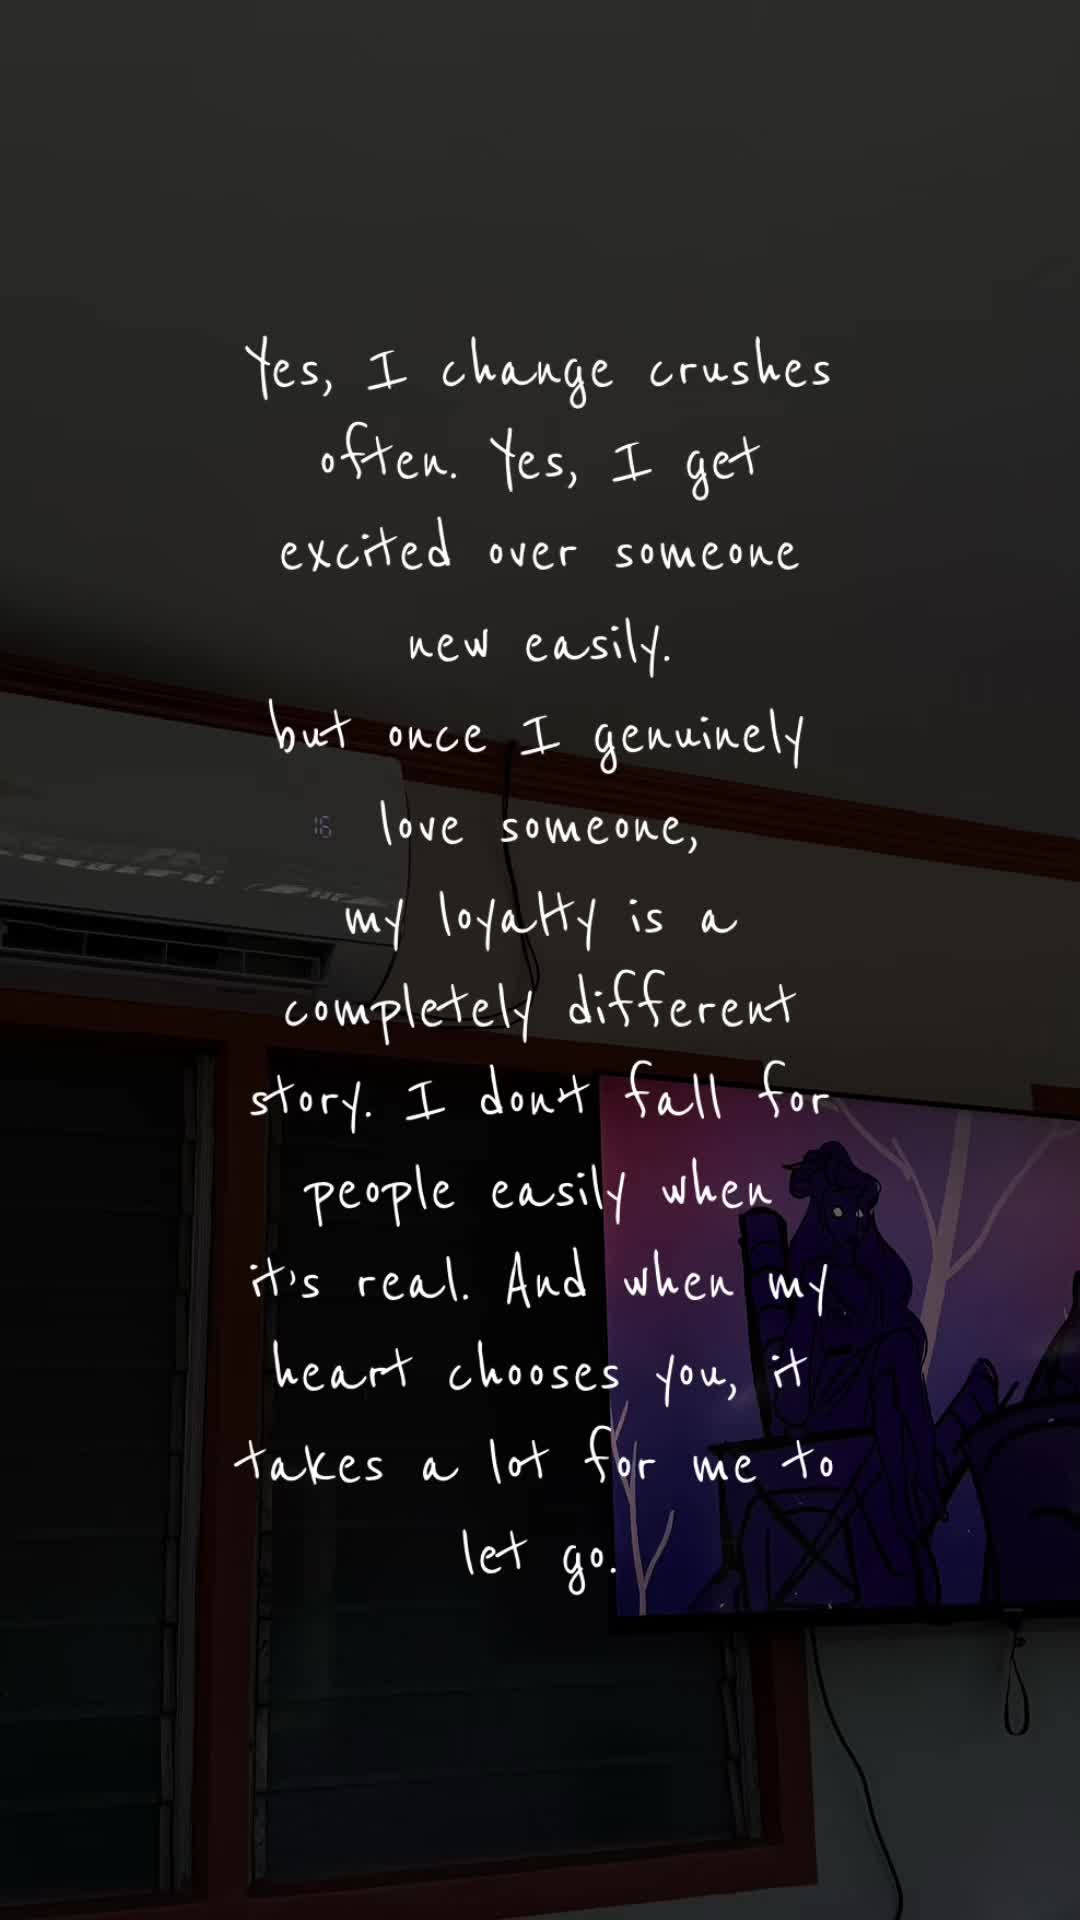 Yes, I change crushes
often. Yes, I get
excited over someone
new easily.
but once I genuinely
love someone,
my loyalty is a
completely different
story. I dont fall for
people easily when
it's real. And when my
heart chooses you, it
takes a lot for me to
let go.
16